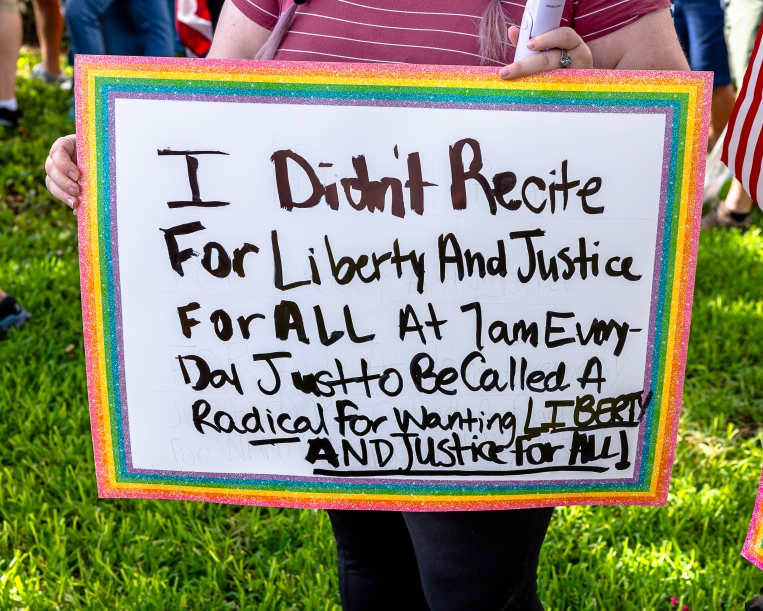 I Didn't Recite
For Liberty And Justice
For ALL At 7am Every-
Day Just to Be Called A
Radical for Wanting LIBERTY
AND Justice for ALL!